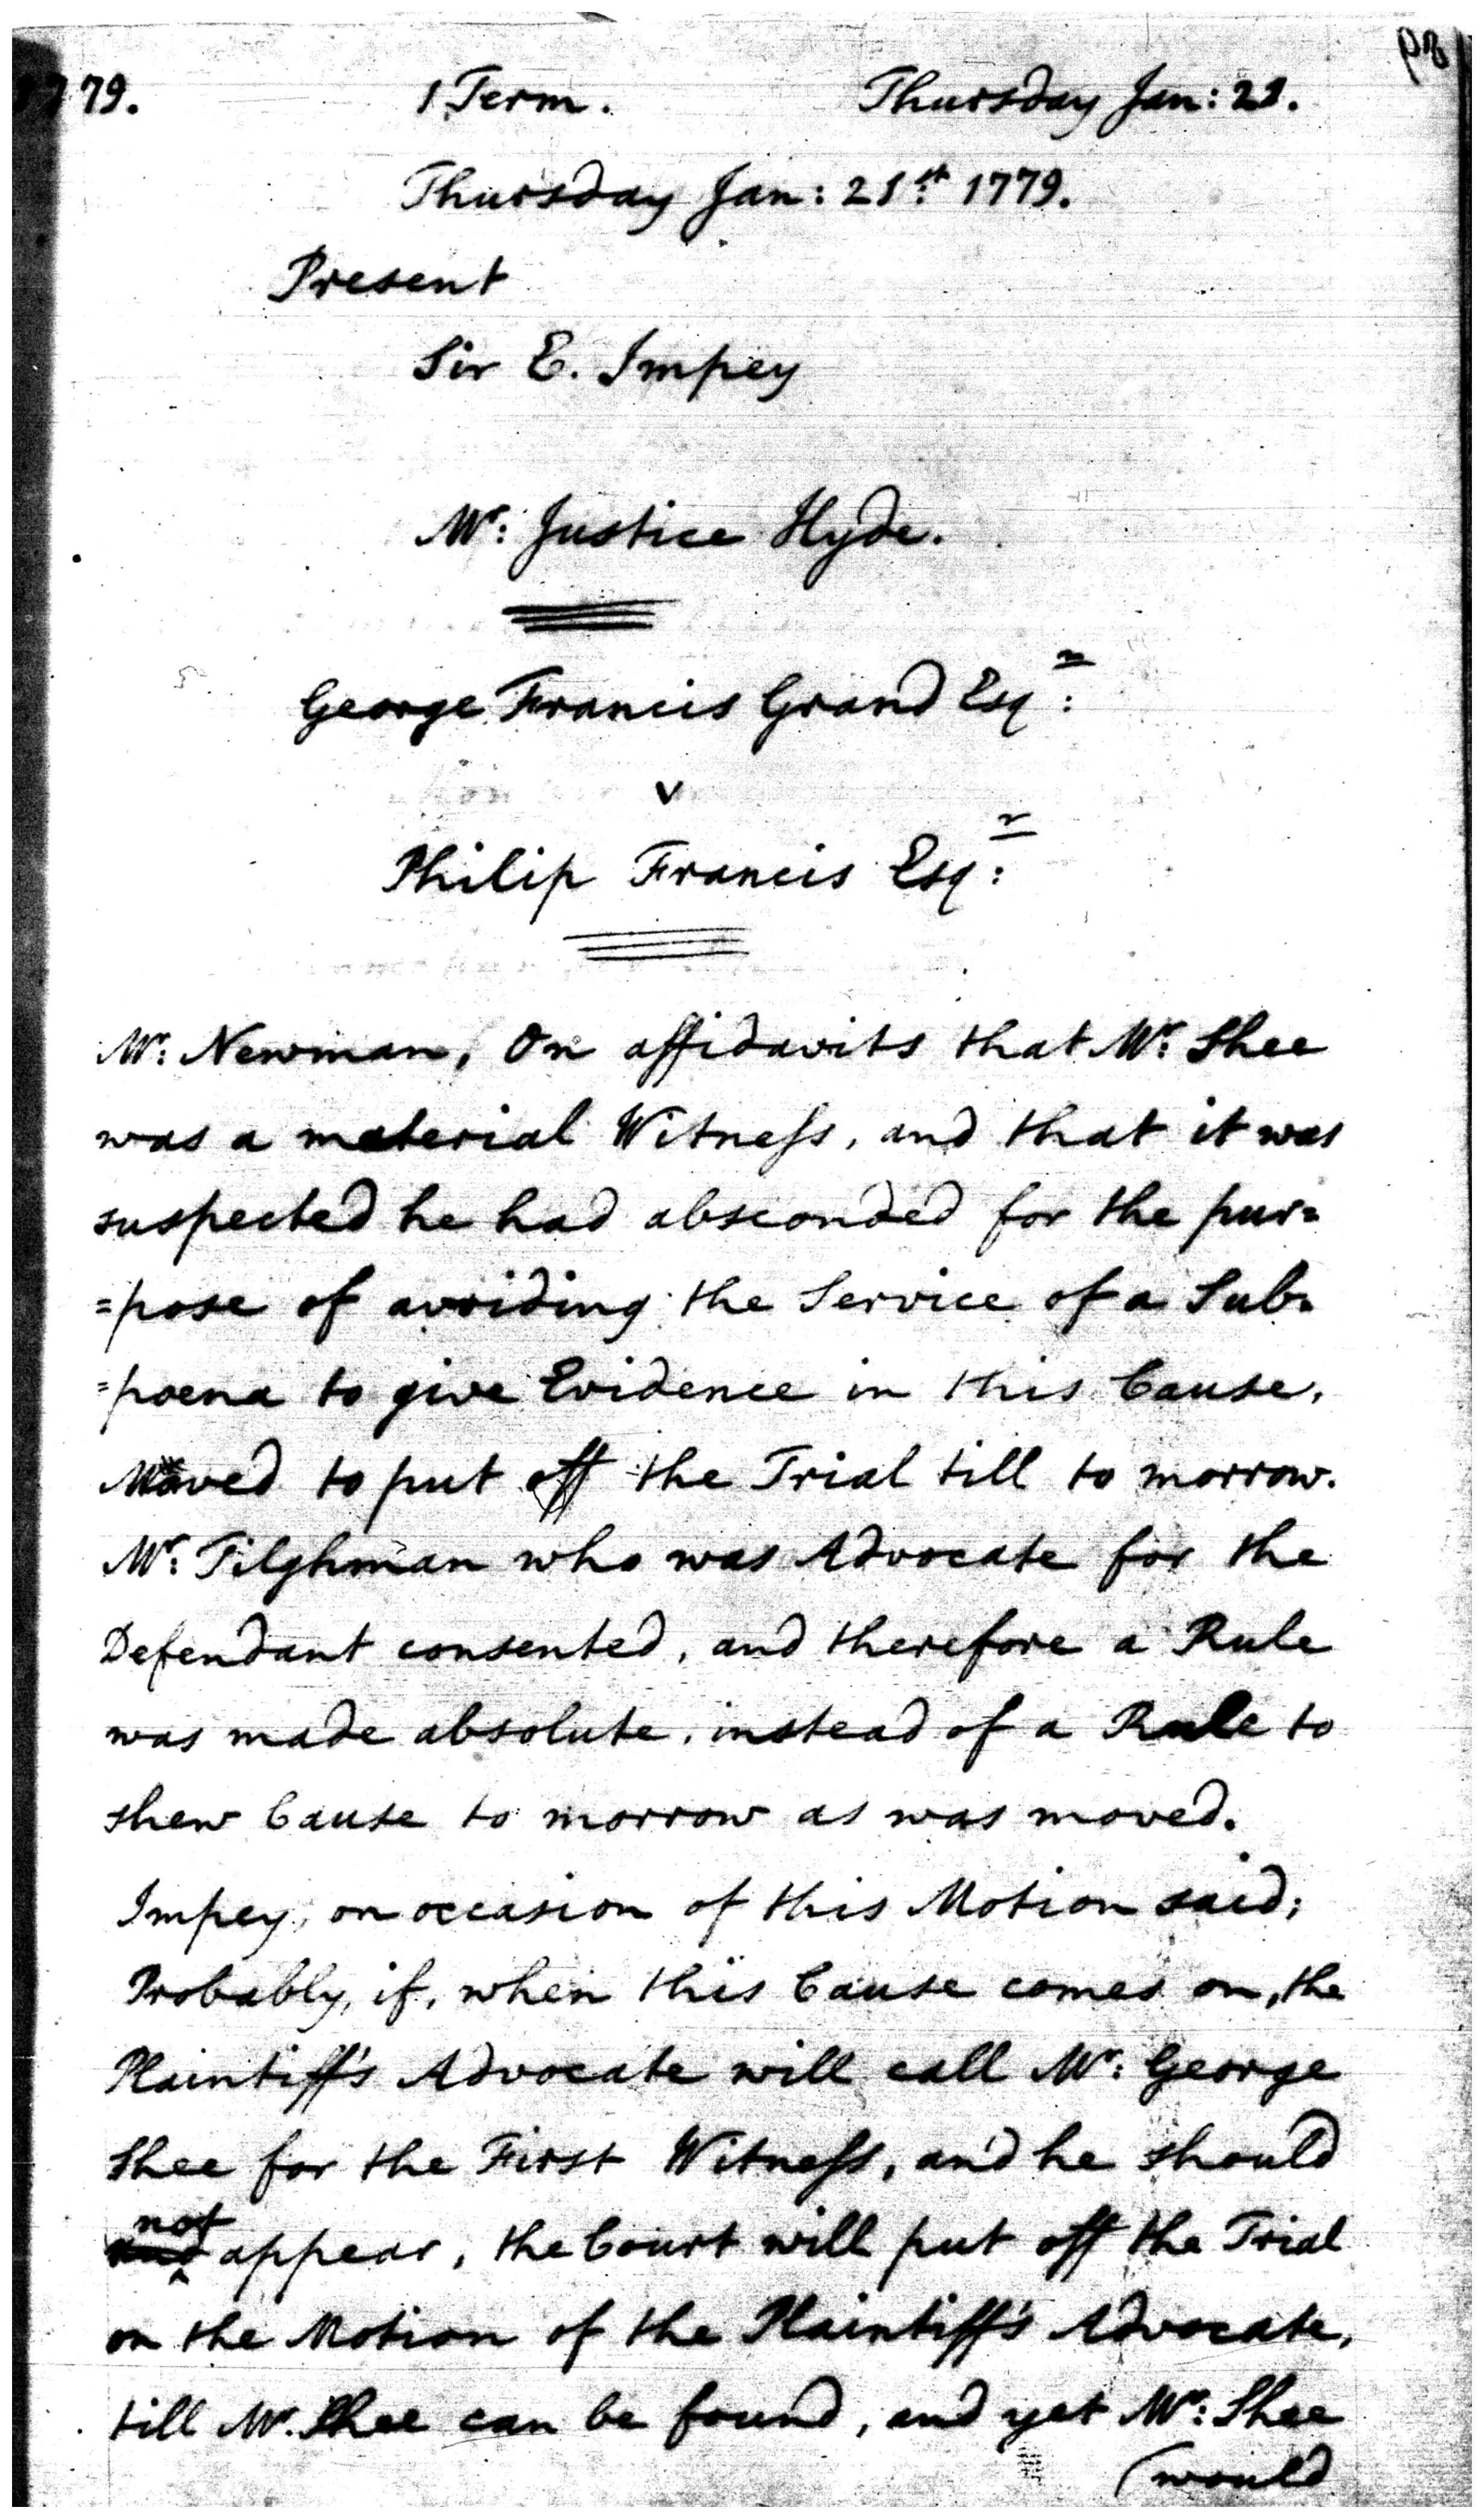 1779. 1 Term. Thursday Jan: 21.
Thursday Jan: 21.st 1779.
Present
Sir E. Impey
Mr: Justice Hyde.
George Francis Grand Esqr:
v
Philip Francis Esqr:
Mr: Newman, On affidavits that Mr: Shee
was a material Witneſs, and that it was
suspected he had absconded for the pur=
=pose of avoiding the Service of a Sub=
=poena to give Evidence in this Cause,
Moved to put off the Trial till to morrow.
Mr: Tilghman who was Advocate for the
Defendant consented, and therefore a Rule
was made absolute, instead of a Rule to
shew Cause to morrow as was moved.
Impey, on occasion of this Motion said;
Probably, if, when this Cause comes on, the
Plaintiff's Advocate will call Mr: George
Shee for the First Witneſs, and he should
not appear, the Court will put off the Trial
on the Motion of the Plaintiff's Advocate,
till Mr. Shee can be found, and yet Mr: Shee
(would